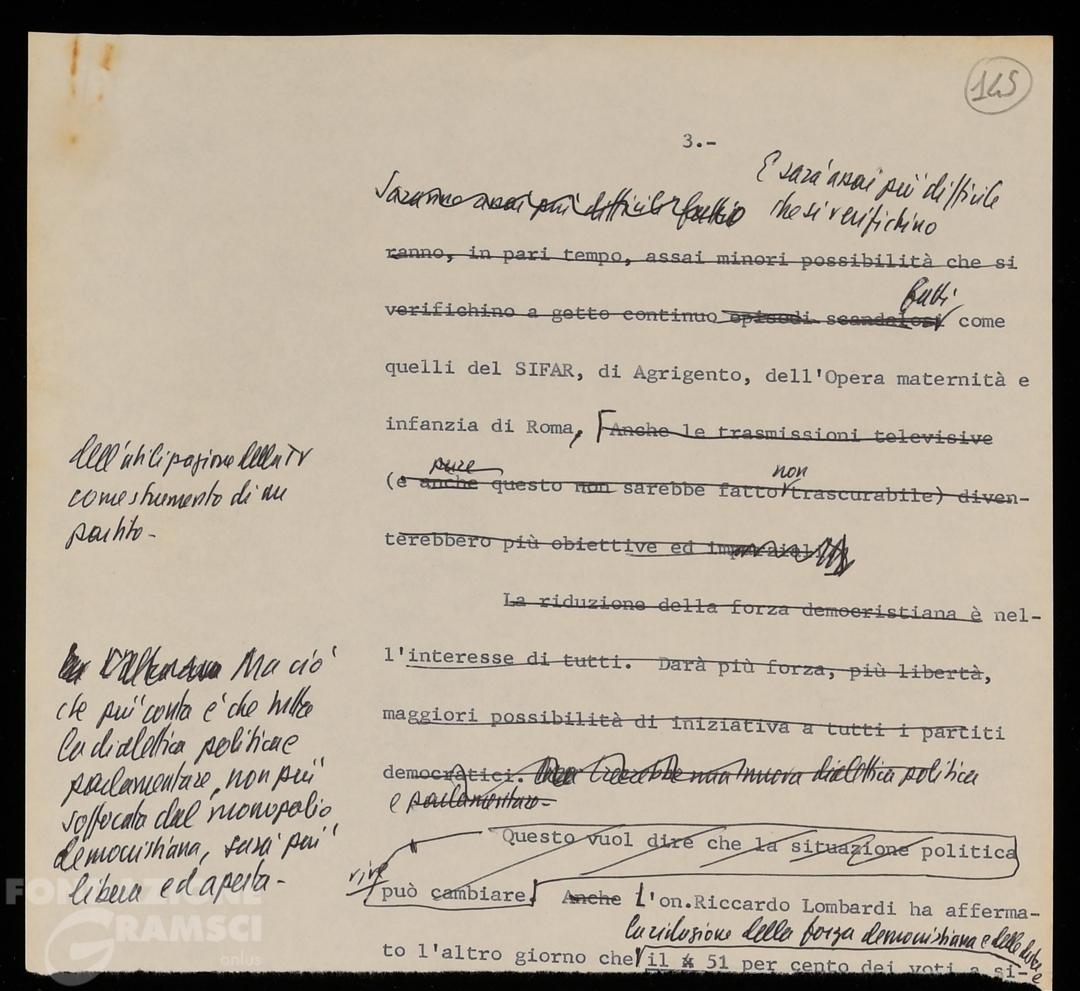 145
3.-
E sarà assai più difficile
che si verifichino
Saranno assai più difficili
ranno, in pari tempo, assai minori possibilità che si
fatti
verifichino a getto continuo episodi scandalosi come
quelli del SIFAR, di Agrigento, dell'Opera maternità e
infanzia di Roma, Anche le trasmissioni televisive
dell'utilizzazione della TV
come strumento di un
partito-
pure non
(e anche questo non sarebbe fatto trascurabile) diven-
terebbero più obiettive ed imparziali
La riduzione della forza democristiana è nel-
l'interesse di tutti. Darà più forza, più libertà,
maggiori possibilità di iniziativa a tutti i partiti
democratici. una nuova dialettica politica
e parlamentare-
Ma ciò
che più conta è che tutta
la dialettica politica e
parlamentare, non più
soffocata dal monopolio
democristiano, sarà più
libera ed aperta-
Questo vuol dire che la situazione politica
può cambiare. Anche L'on.Riccardo Lombardi ha afferma-
la riduzione della forza democristiana e delle
to l'altro giorno che il 51 per cento dei voti a si-
FONDAZIONE
GRAMSCI
onlus